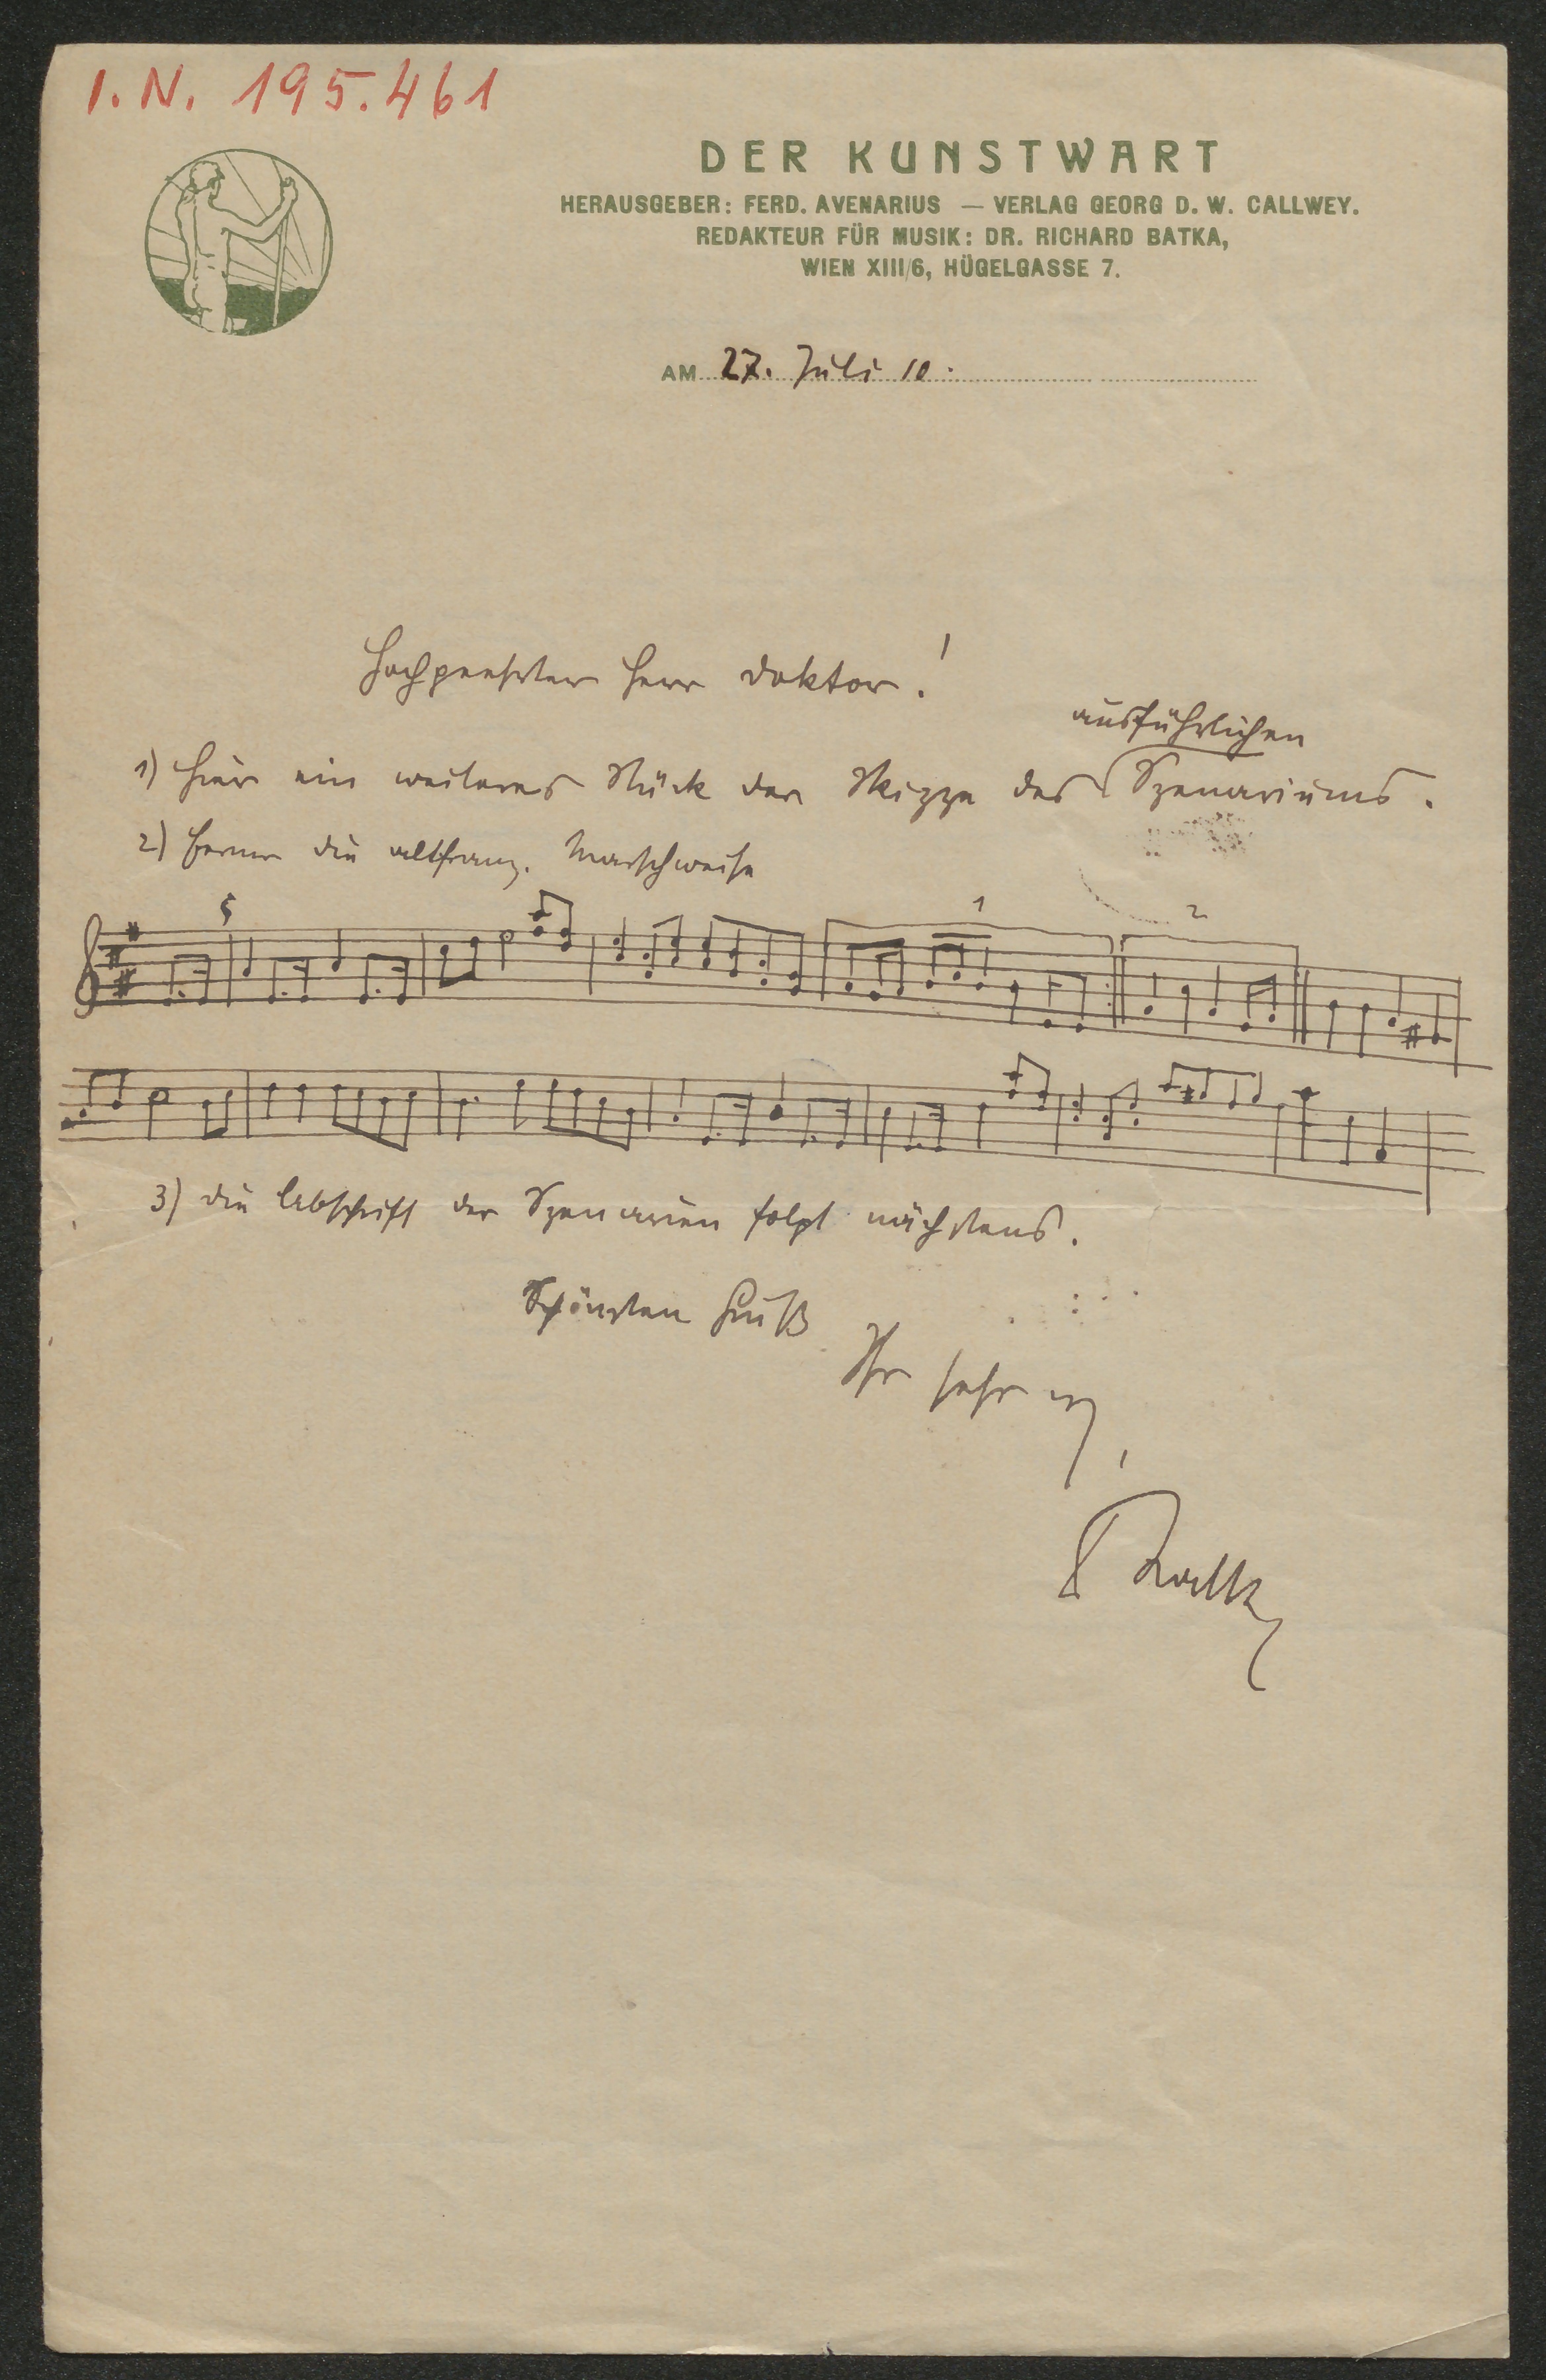 I. N. 195.461
DER KUNSTWART
HERAUSGEBER: FERD. AVENARIUS — VERLAG GEORG D. W. CALLWEY.
REDAKTEUR FÜR MUSIK: DR. RICHARD BATKA,
WIEN XIII/6, HÜGELGASSE 7.
AM 27. Juli 10.
Hochgeehrter Herr Doktor!
ausführlichen
1) Hier ein weiteres Stück der Skizze des Szenariums.
2) Ferner die altfranz. Marschweise
1 2
3) Die Abschrift der Szenarien folgt nächstens.
Schönsten Gruß
Ihr sehr erg.
R Batka